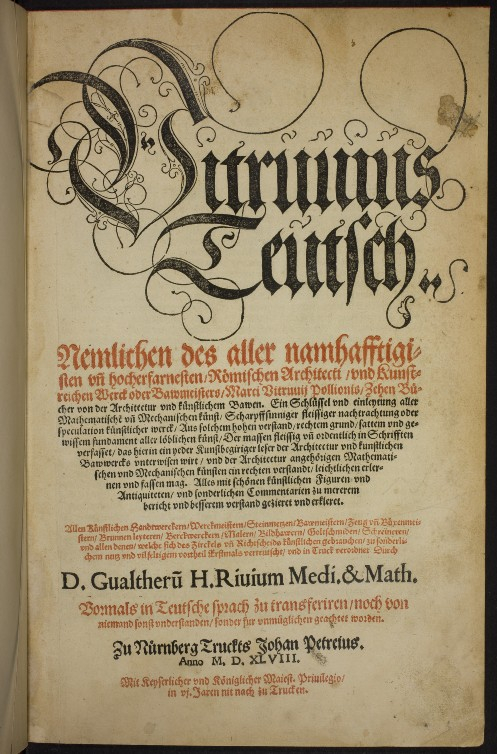 Vitruuius
Teutsch.
Nemlichen des aller namhafftigi-
sten vñ hocherfarnesten/Römischen Architecti/vnd Kunst-
reichen Werck oder Bawmeisters/Marci Vitruuij Pollionis/Zehen Bü-
cher von der Architectur vnd künstlichem Bawen. Ein Schlüssel vnd einleytung aller
Mathematischẽ vñ Mechanischen künst/Scharpffsinniger fleissiger nachtrachtung oder
speculation künstlicher werck/Aus solchem hohen verstand/rechtem grund/sattem vnd ge-
wissem fundament aller löblichen künst/Der massen fleissig vñ ordentlich in Schrifften
verfasset/das hierin ein yeder Kunstbegiriger leser der Architectur vnd künstlichen
Bawwercks vnterwisen wirt/vnd der Architectur angehörigen Mathemati-
schen vnd Mechanischen künsten ein rechten verstandt/leichtlichen erler-
nen vnd fassen mag. Alles mit schönen künstlichen Figuren vnd
Antiquiteten/vnd sonderlichen Commentarien zu mererem
bericht vnd besserem verstand gezieret vnd erkleret.
Allen Künstlichen Handtwerckern/Werckmeistern/Steinmetzen/Bawmeistern/Zeug vñ Büxenmei-
stern/Brunnen leyteren/Berckwerckern/Malern/Bildhawern/Goltschmiden/Schreineren/
vnd allen denen/welche sich des Zirckels vñ Richtscheids künstlichen gebrauchen/zu sonderli-
chem nutz vnd vilfeltigem vortheil erstmals verteutscht/vnd in Truck verordnet Durch
D. Gualtherũ H. Riuium Medi. & Math.
Vormals in Teutsche sprach zu transferiren/noch von
niemand sonst vnderstanden/sonder fur vnmüglichen geachtet worden.
Zu Nürnberg Truckts Johan Petreius.
Anno M. D. XLVIII.
Mit Keyserlicher vnd Königlicher Maiest. Priuilegio/
in vj. Jaren nit nach zu Trucken.